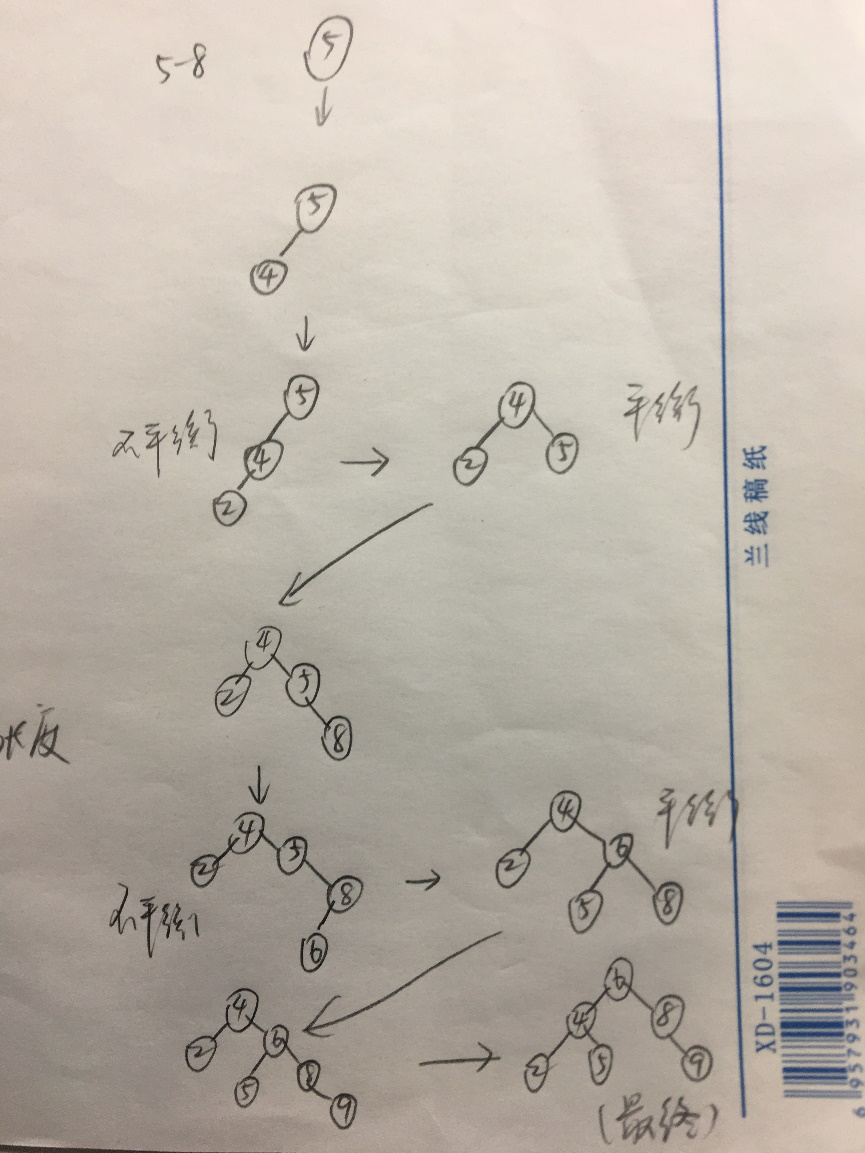 5-8
5
5
4
5
不平衡
4
2
4
平衡
2
5
4
2
5
8
长度
4
2
5
8
6
不平衡
4
平衡
2
6
5
8
4
2
6
5
8
9
6
4
8
2
5
9
(最终)
兰线稿纸
XD-1604
6 957931 903464